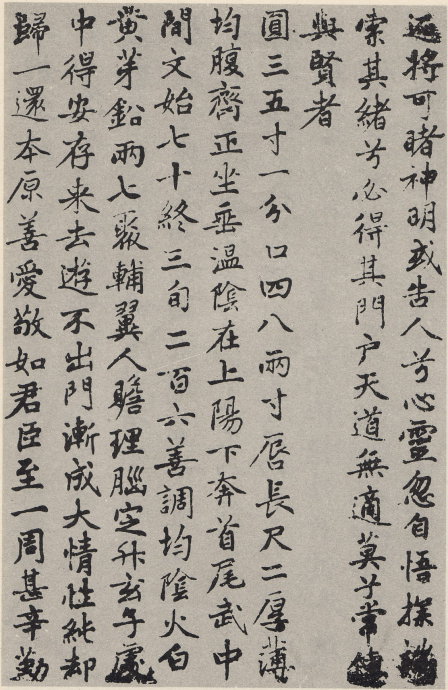 遍將可睹神明或告人兮心靈忽自悟探端
索其緒兮必得其門户天道無適莫兮常傳
與賢者
圓三五寸一分口四八兩寸唇長尺二厚薄
均腹齊正坐垂温陰在上陽下奔首尾武中
間文始七十終三旬二百六善調均陰火白
黄芽鉛兩七聚輔翼人贍理腦定升玄子處
中得安存来去遊不出門漸成大情性純却
歸一還本原善愛敬如君臣至一周甚辛勤